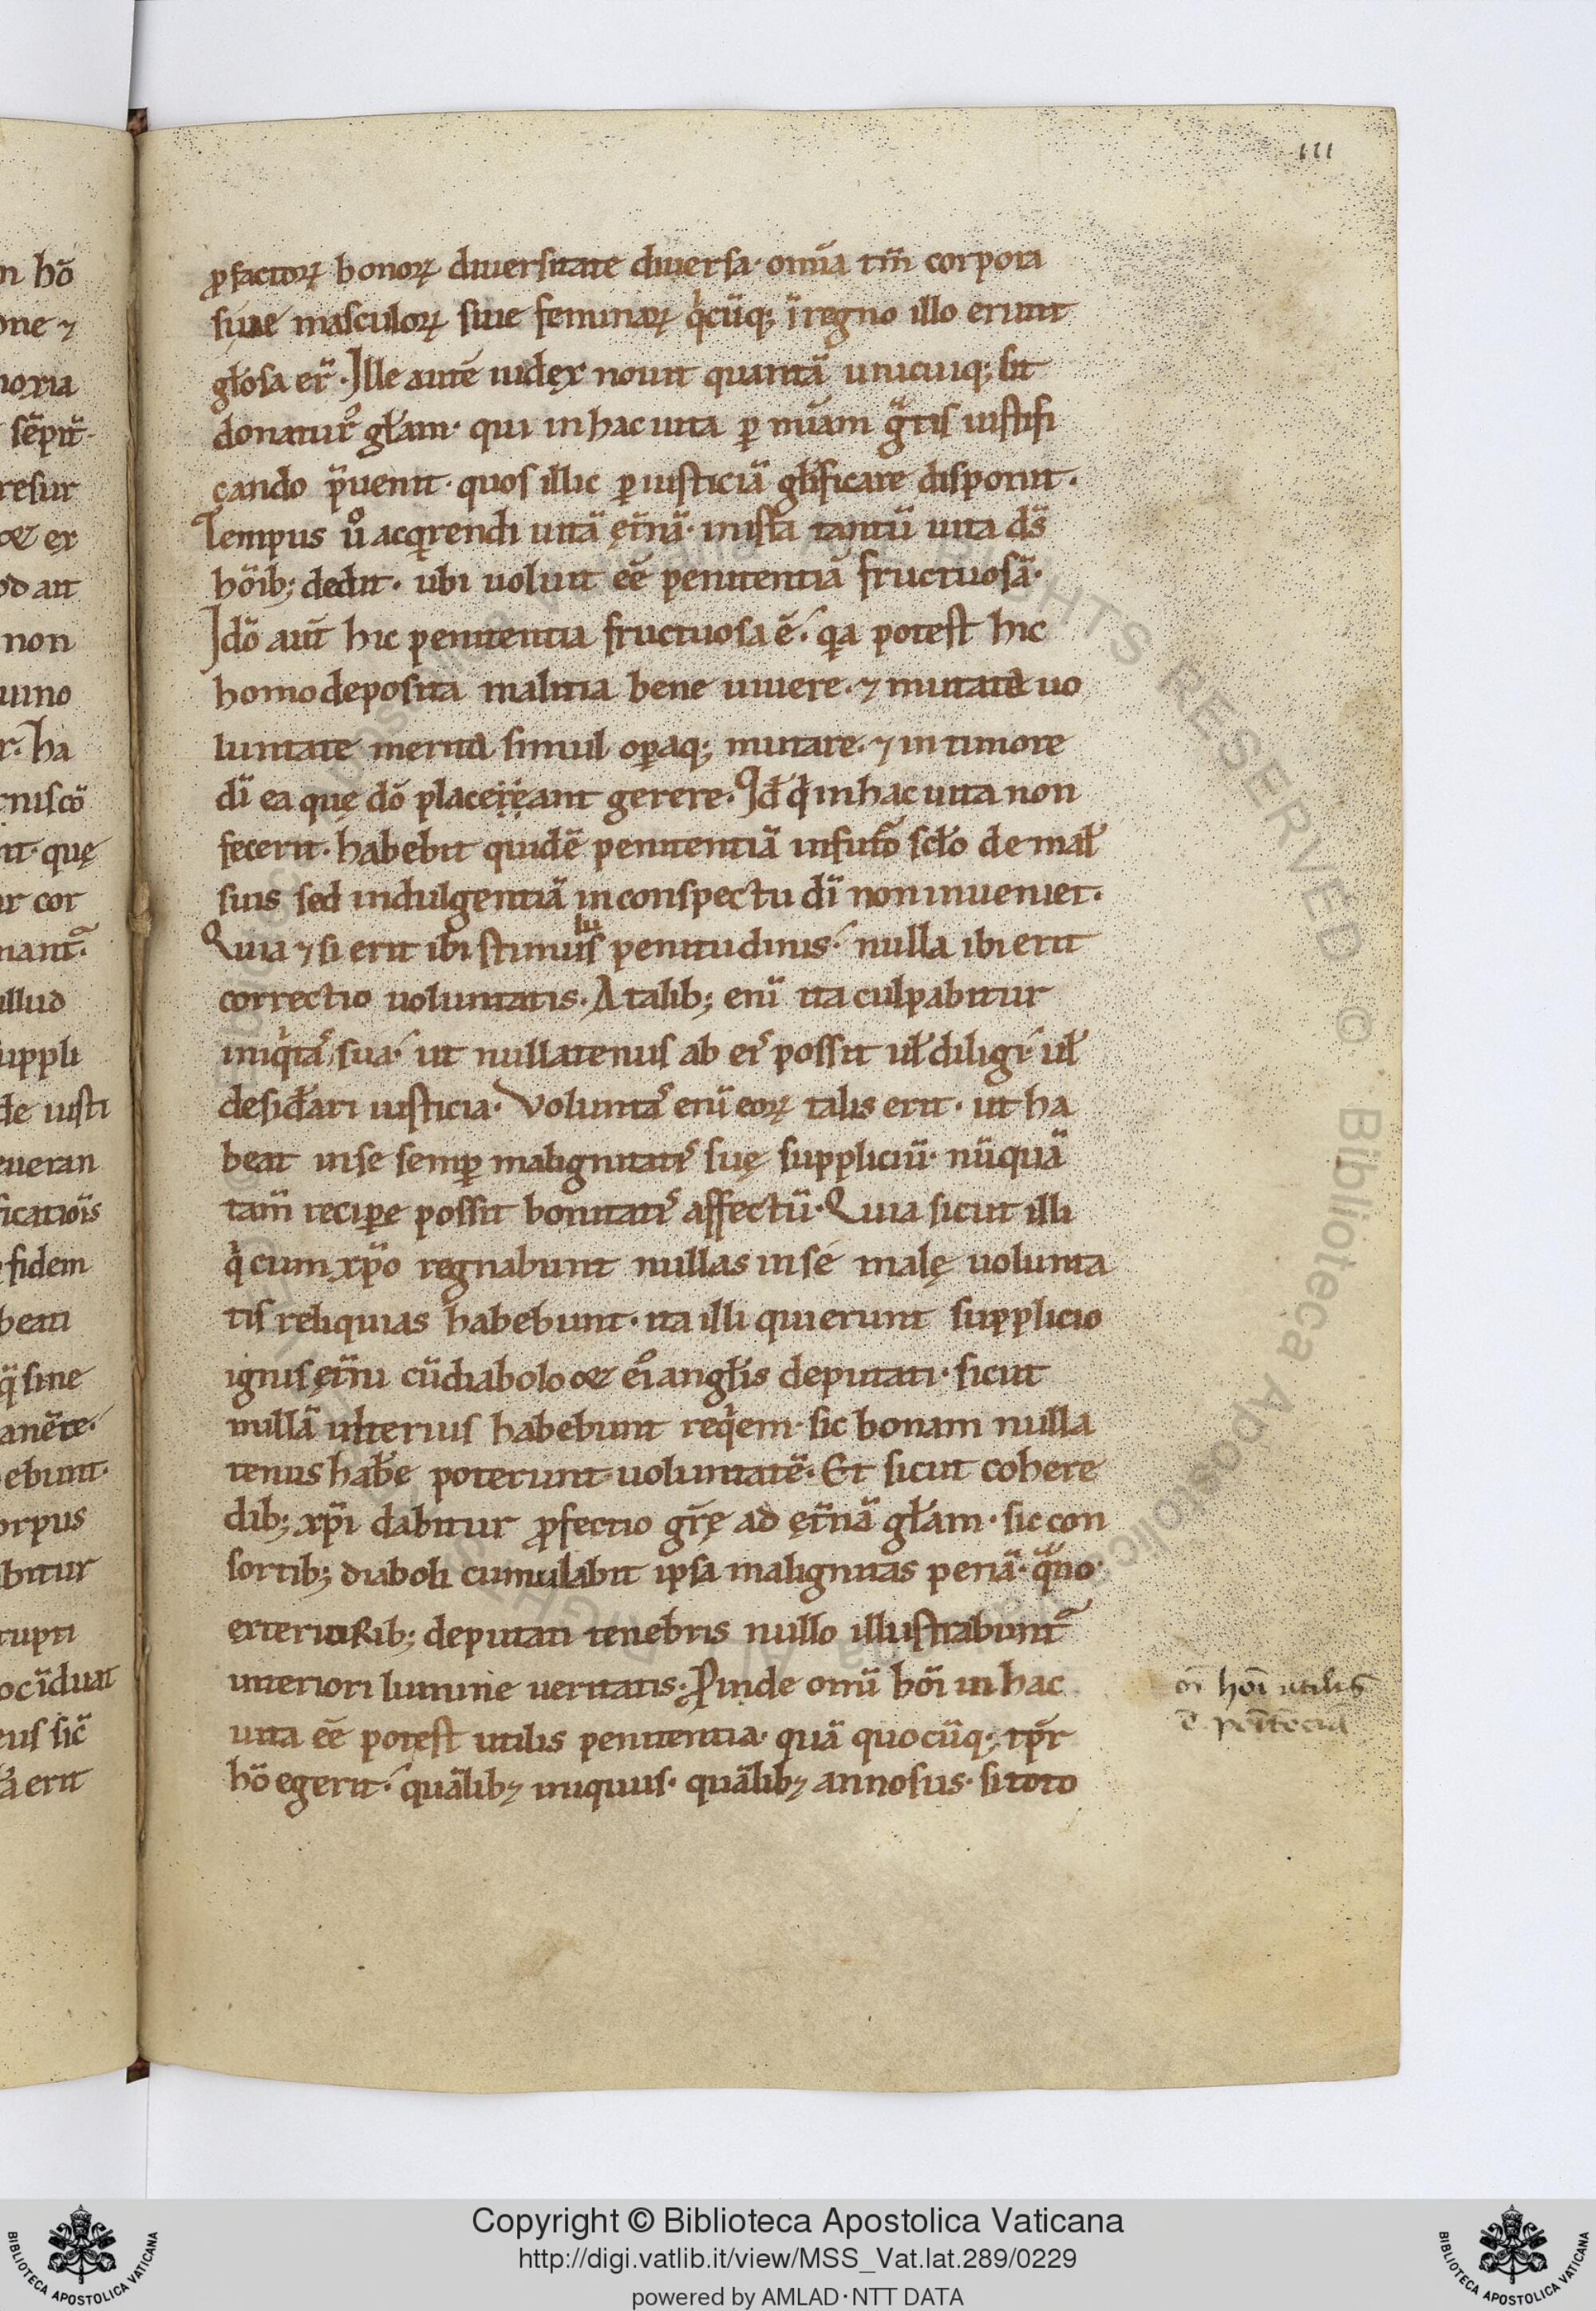 III
ꝓfactoꝝ bonoꝝ diuersitate diuersa· om̅a tm̅ corpora
siue masculoꝝ siue feminaꝝ qͥcūq; i̅ regno illo erunt
gl̅osa er̅· Ille aute̅ iudex nouit quantā unicuiq; sit
donatur᷒ gl̅am· qui in hac uita ꝑ mīam gͣtis iustifi
cando p̅uenit· quos illic ꝑ iusticiā gl̅ificare disponit·
Tempus uͦ acqͥrendi uitā ęt̅nā· in ista tantū uita ds̅
hoīb; dedit· ubi uoluit ee̅ penitentiā fructuosā·
Ido̅ aut̅ hic penitentia fructuosa e̅· qͥa potest hic
homo deposita malitia bene uiuere· ⁊ mutata uo
luntate merita simul oꝑaq; mutare· ⁊ in timore
di̅ ea quę do̅ placeant gerere· Id̅ qͥ in hac uita non
fecerit· habebit quidē penitentiā in futo̅ scl̅o de mal̅
suis sed indulgentiā in conspectu di̅ non inueniet·
Quia ⁊ si erit ibi stimulus penitudinis· nulla ibi erit
correctio uoluntatis· A talib; enī ita culpabitur
iniqͥta᷒ sua· ut nullatenus ab ei᷒ possit ul̅ diligi· ul̅
desid̅ari iusticia· Volunta᷒ enī eoꝝ talis erit· ut ha
beat in se semꝑ malignitati᷒ suę suppliciū· nūquā
tam̅ reciꝑe possit bonitati᷒ affectū· Quia sicut illi
qͥ cum xp̅o regnabunt nullas in se malę uolunta
tis reliquias habebunt· ita illi qui erunt supplicio
ignis ęt̅ni cū diabolo & ei᷒ angl̅is deputati· sicut
nullā ulterius habebunt reqͥem· sic bonam nulla
tenus hab̅e poterunt uoluntatē· Et sicut cohere
dib; xp̅i dabitur ꝑfectio gr̅ę ad ęt̅nā gl̅am· sic con
sortib; diaboli cumulabit ipsa malignitas penā· qn̅o
exteriorib; deputati tenebris nullo illustrabunt᷒
interiori lumine ueritatis· Ꝓinde omī hoī in hac
uita ee̅ potest utilis penitentia· quā quocūq; tp̅r
ho̅ egerit· quālib⁊ iniquus· quālib⁊ annosus· si toto
oī hoī utilis
ē penitēcia
Copyright © Biblioteca Apostolica Vaticana
http://digi.vatlib.it/view/MSS_Vat.lat.289/0229
powered by AMLAD·NTT DATA